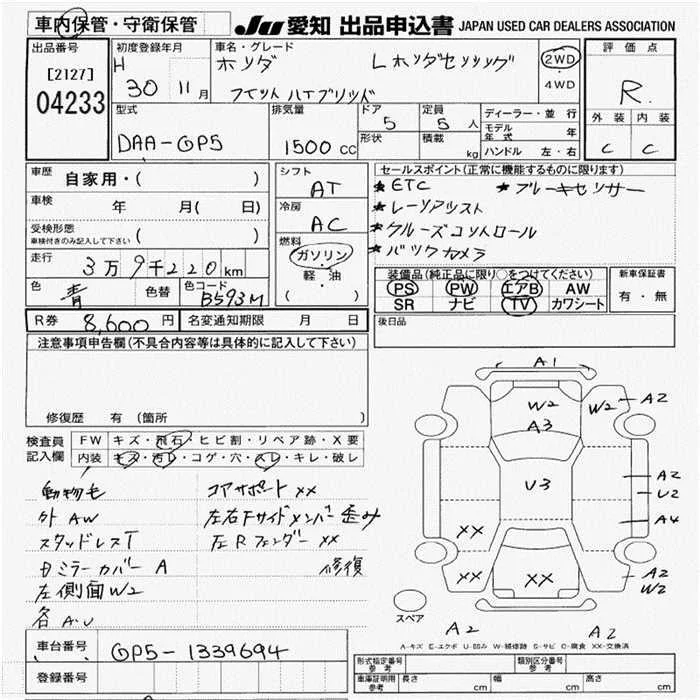 車内保管・守衛保管
JU 愛知 出品申込書 JAPAN USED CAR DEALERS ASSOCIATION
出品番号
[2127]
04233
初度登録年月
H 30 11月
車名・グレード
ホンダ Lホンダセンシング
フィットハイブリッド
2WD
・
4WD
評価点
R
外装 内装
C C
型式
DAA-GP5
排気量
1500 cc
ドア
5
形状
定員
5 人
積載
kg
ディーラー・並行
モデル年式 年
ハンドル 左・右
車歴 自家用・( )
車検 年 月(日)
受検形態
車検付きのみ記入して下さい ( )
走行 3万9千220km
色 青 色替 色コード B593M
シフト
AT
冷房
AC
燃料
ガソリン
・
軽・油
( )
セールスポイント(正常に機能するものに限ります)
★ETC ★ブレーキセンサー
★レーンアシスト
★クルーズコントロール
★バックカメラ
装備品(純正品に限り○をつけてください)
PS PW エアB AW
SR ナビ TV カワシート
新車保証書
有・無
R券 8,600円 名変通知期限 月 日
後日品
注意事項申告欄(不具合内容等は具体的に記入して下さい)
修復歴 有 (箇所 )
検査員記入欄
FW キズ・飛石・ヒビ割・リペア跡・X要
内装 キズ・汚レ・コゲ・穴・スレ・キレ・破レ
動物毛
外AW
スタッドレスT
ドミラーカバー A
左側面W2
各A.U
コアサポート XX
左右Fサイドメンバー歪み
左Rフェンダー XX
修復
A1
W2
A3
W2
A2
U3
A2
U2
A4
XX
XX
XX
A2
W2
スペア
A2
A2
A-キズ E-エクボ U-凹み W-補修跡 S-サビ C-腐食 XX-交換済
車台番号 GP5-1339694
登録番号
形式指定番号 参考
類別区分番号 参考
車庫証明用 参考 長さ cm 幅 cm 高さ cm